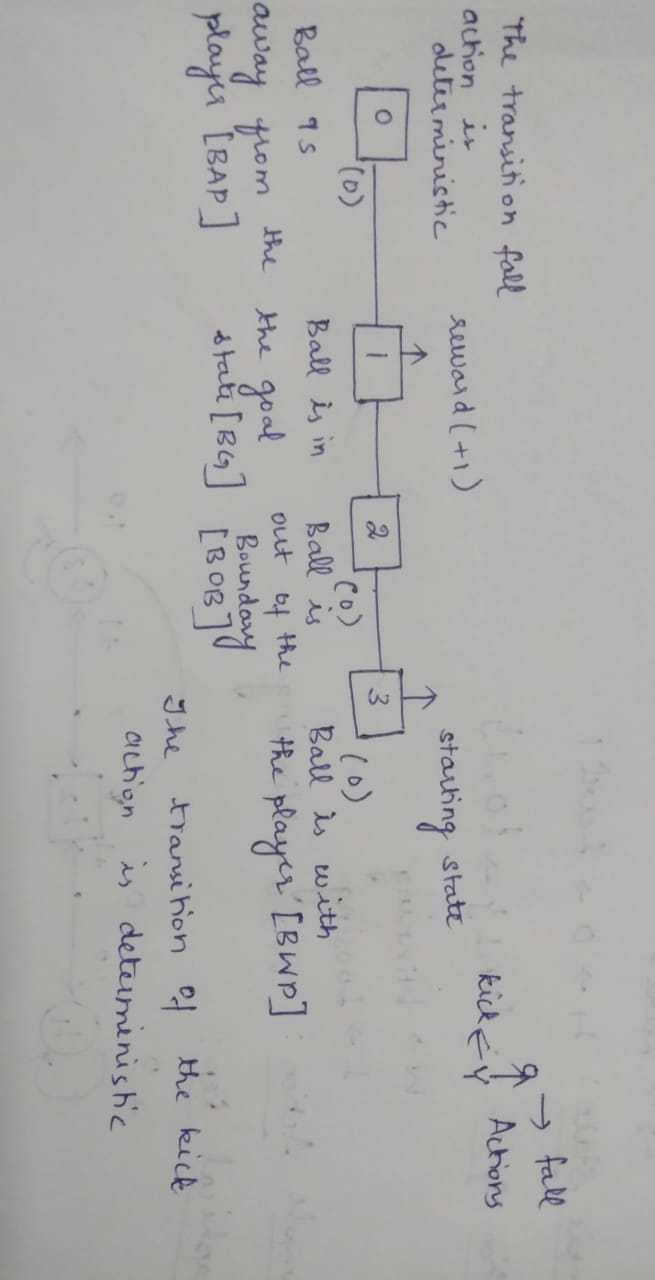 The transition fall
action is
deterministic
reward (+1)
starting state
→ fall
kick ← Actions
0
1
2
3
(0)
(0)
(0)
Ball is
away from the
player [BAP]
Ball is in
the goal
state [BG]
Ball is
out of the
Boundary
[BOB]
Ball is with
the player [BWP]
The transition of the kick
action is deterministic